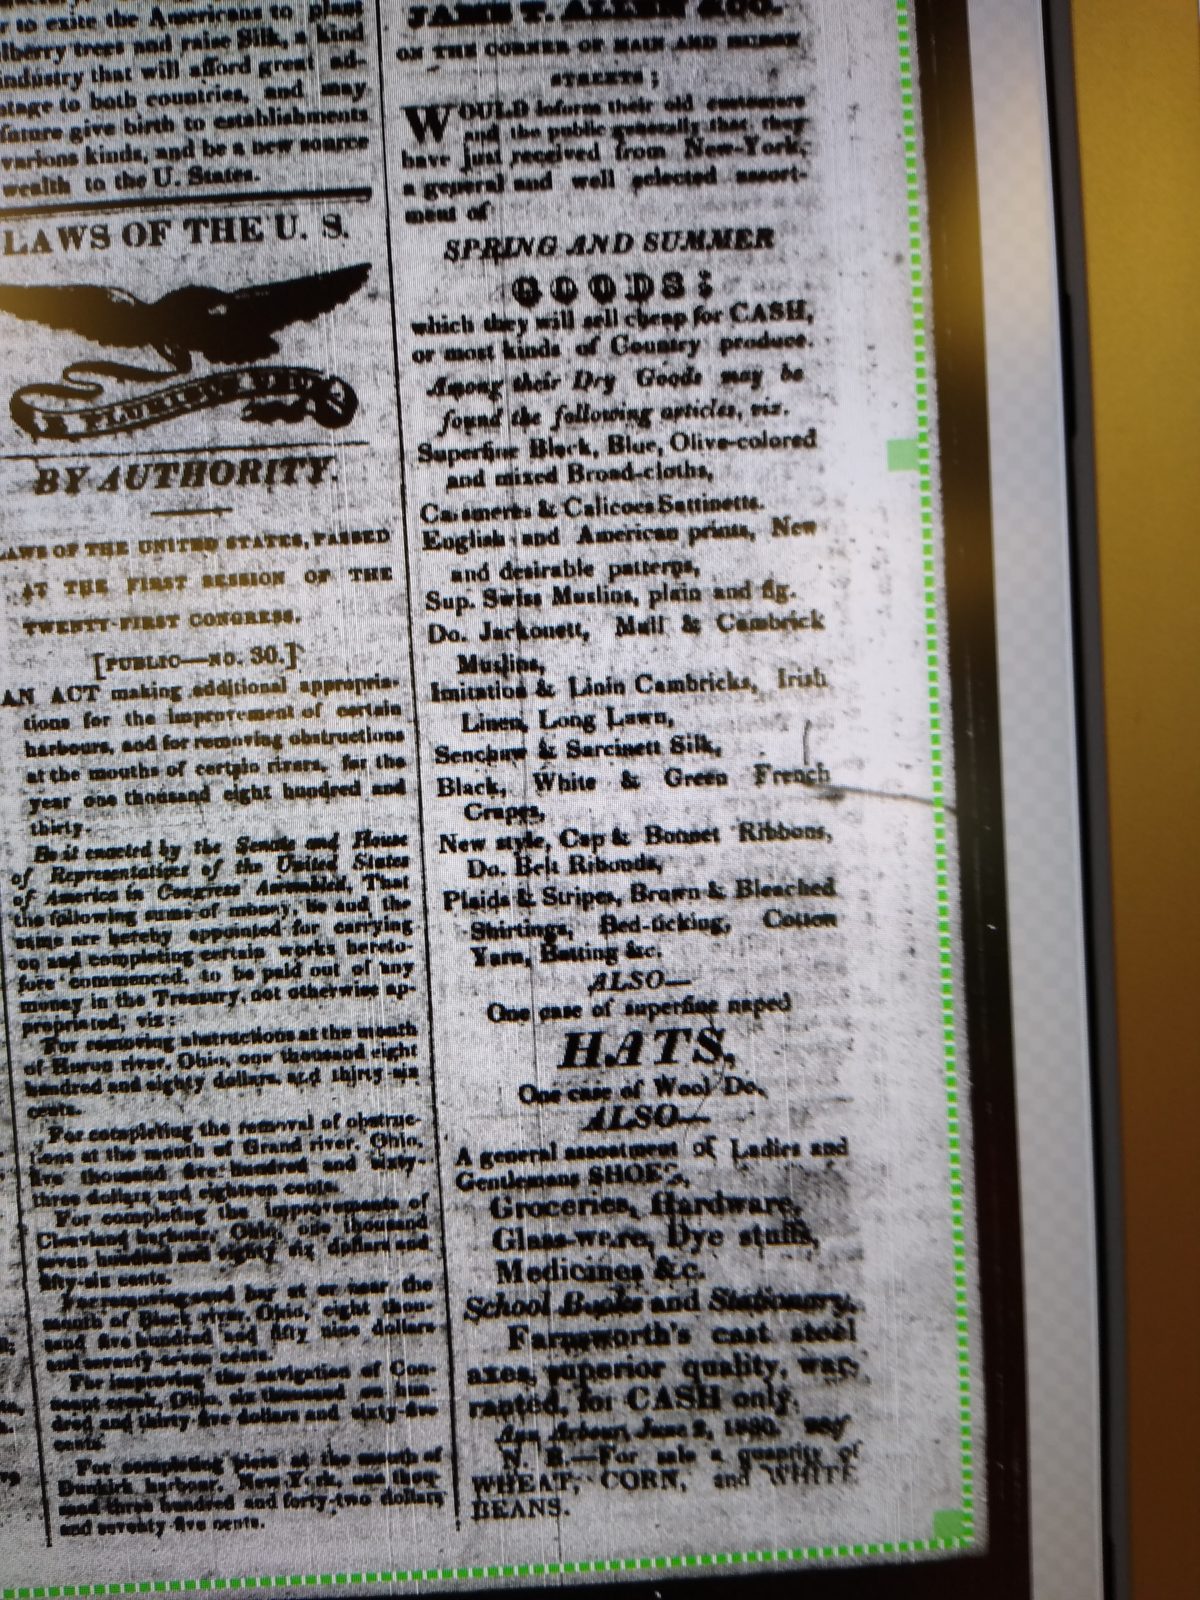 to exite the Americans to plant
lberry trees and raise Silk, a kind
industry that will afford great ad-
tage to both countries, and may
future give birth to establishments
various kinds, and be a new source
wealth to the U. States.
LAWS OF THE U. S.
E PLURIBUS UNUM
BY AUTHORITY.
LAWS OF THE UNITED STATES, PASSED
AT THE FIRST SESSION OF THE
TWENTY-FIRST CONGRESS.
[PUBLIC—NO. 30.]
AN ACT making additional appropria-
tions for the improvement of certain
harbours, and for removing obstructions
at the mouths of certain rivers, for the
year one thousand eight hundred and
thirty.
Be it enacted by the Senate and House
of Representatives of the United States
of America in Congress Assembled, That
the following sums of money, be and, the
same are hereby appointed for carrying
on and completing certain works hereto-
fore commenced, to be paid out of any
money in the Treasury, not otherwise ap-
propriated, viz:
For removing obstructions at the mouth
of Huron river, Ohio, one thousand eight
hundred and eighty dollars, and thirty six
cents.
For completing the removal of obstruc-
ions at the mouth of Grand river, Ohio,
five thousand five hundred and sixty-
three dollars and eighteen cents.
For completing the improvements of
Cleaveland harbour, Ohio, one thousand
seven hundred and eighty six dollars and
fifty-six cents.
For removing sand bar at or near the
mouth of Black river, Ohio, eight thou-
sand five hundred and fifty nine dollars
and seventy-seven cents.
For improving the navigation of Con-
neaut creek, Ohio, six thousand one hun-
dred and thirty five dollars and sixty-five
cents.
For completing piers at the mouth of
Dunkirk harbour, New York, one thou-
sand three hundred and forty-two dollars
and seventy-five cents.
JAMES T. ALLEN & CO.
ON THE CORNER OF MAIN AND HURON
STREETS;
WOULD inform their old customers
and the public generally that they
have just received from New-York,
a general and well selected assort-
ment of
SPRING AND SUMMER
GOODS;
which they will sell cheap for CASH,
or most kinds of Country produce.
Among their Dry Goods may be
found the following articles, viz.
Superfine Black, Blue, Olive-colored
and mixed Broad-cloths,
Casimeres & Calicoes Sattinetts.
English and American prints, New
and desirable patterns,
Sup. Swiss Muslins, plain and fig.
Do. Jackonett, Mull & Cambrick
Muslins,
Imitation & Linin Cambricks, Irish
Linen, Long Lawn,
Senchaw & Sarcinett Silk,
Black, White & Green French
Crapes,
New style, Cap & Bonnet Ribbons,
Do. Belt Ribonds,
Plaids & Stripes, Brown & Bleached
Shirtings, Bed-ticking, Cotton
Yarn, Batting &c.
ALSO—
One case of superfine naped
HATS,
One case of Wool Do.
ALSO—
A general assortment of Ladies and
Gentlemans SHOES,
Groceries, Hardware,
Glass-ware, Dye stuffs,
Medicines &c.
School Books and Stationary.
Farnsworth's cast steel
axes, superior quality, war-
ranted, for CASH only.
Ann Arbour, June 2, 1830.
N. B.—For sale a quantity of
WHEAT, CORN, and WHITE
BEANS.